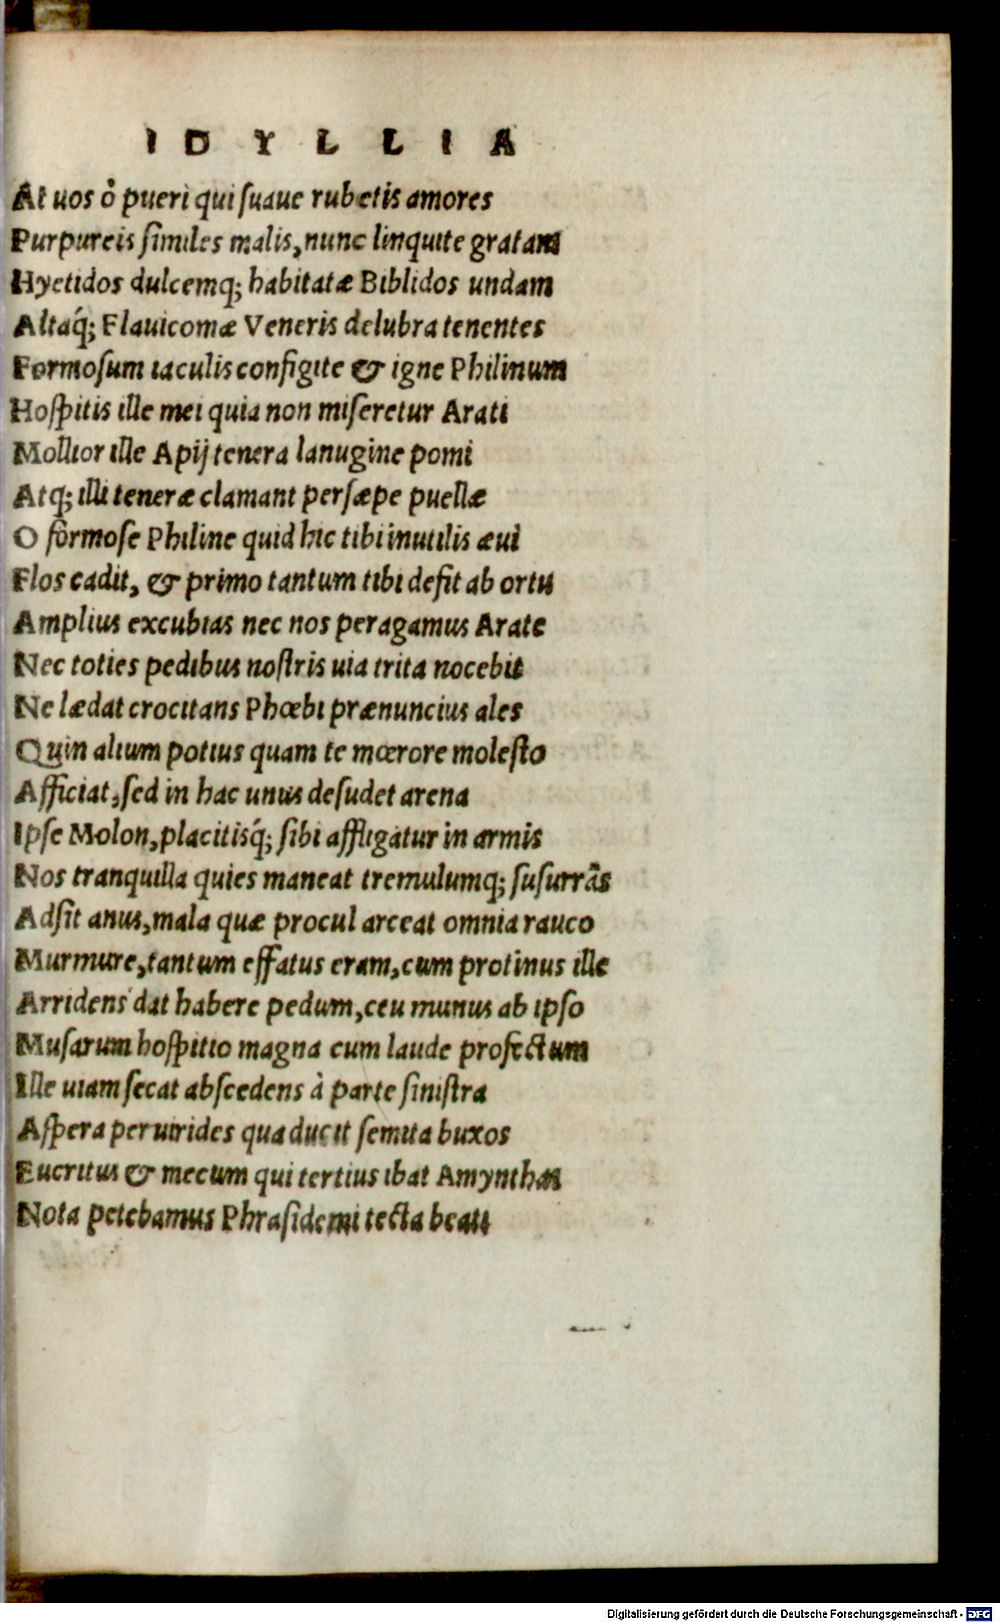 IDYLLIA
At uos ô pueri qui suaue rubetis amores
Purpureis similes malis, nunc linquite gratam
Hyetidos dulcemq; habitatæ Biblidos undam
Altaq́; Flauicomæ Veneris delubra tenentes
Formosum iaculis configite & igne Philinum
Hospitis ille mei quia non miseretur Arati
Mollior ille Apij tenera lanugine pomi
Atq; illi teneræ clamant persæpe puellæ
O formose Philine quid hic tibi inutilis æui
Flos cadit, & primo tantum tibi defit ab ortu
Amplius excubias nec nos peragamus Arate
Nec toties pedibus nostris uia trita nocebit
Ne lædat crocitans Phœbi prænuncius ales
Quin alium potius quam te mœrore molesto
Afficiat, sed in hac unus desudet arena
Ipse Molon, placitisq́; sibi affligatur in armis
Nos tranquilla quies maneat tremulumq; susurrãs
Adsit anus, mala quæ procul arceat omnia rauco
Murmure, tantum effatus eram, cum protinus ille
Arridens dat habere pedum, ceu munus ab ipso
Musarum hospitio magna cum laude profectum
Ille uiam secat abscedens à parte sinistra
Aspera per uirides qua ducit semita buxos
Eucritus & mecum qui tertius ibat Amynthas
Nota petebamus Phrasidemi tecta beati
Digitalisierung gefördert durch die Deutsche Forschungsgemeinschaft - DFG